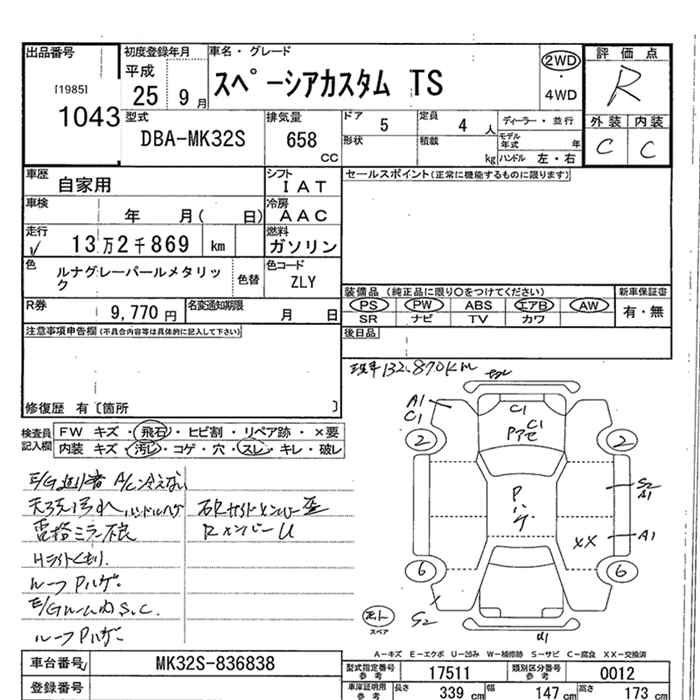 出品番号 初度登録年月 車名・グレード 評価点
[1985] 1043
平成 25 9月
スペーシアカスタム TS
2WD ・ 4WD
R
型式 排気量 ドア 5 定員 4人 ディーラー・並行
DBA-MK32S 658 CC
形状 積載 kg モデル年式 年 ハンドル 左・右
外装 内装
C C
車歴 自家用 シフト IAT
セールスポイント(正常に機能するものに限ります)
車検 年 月( 日) 冷房 AAC
走行 √ 13万2千869 km 燃料 ガソリン
色 ルナグレーパールメタリック 色替 色コード ZLY
装備品 (純正品に限り○をつけてください) 新車保証書
PS PW ABS エアB AW 有・無
SR ナビ TV カワ
R券 9,770円 名変通知期限 月 日
後日品
注意事項申告欄(不具合内容等は具体的に記入して下さい)
修復歴 有〔箇所 〕
132,870km
検査員記入欄 FW キズ・飛石・ヒビ割・リペア跡・×要
内装 キズ・汚レ・コゲ・穴・スレ・キレ・破レ
A/C冷えない
電格ミラー不良
ルーフPハゲ
E/Gルーム内S.C.
ルーフPハゲ
RメンバーU
A1
C1
C1
C1
Pアセ
2 2
Pハゲ
S2
A1
A1
XX
6 6
S2
U1
スペア
A-キズ E-エクボ U-凹み W-補修跡 S-サビ C-腐食 XX-交換済
車台番号 MK32S-836838
型式指定番号参考 17511 類別区分番号参考 0012
登録番号
車庫証明用参考 長さ 339 cm 幅 147 cm 高さ 173 cm